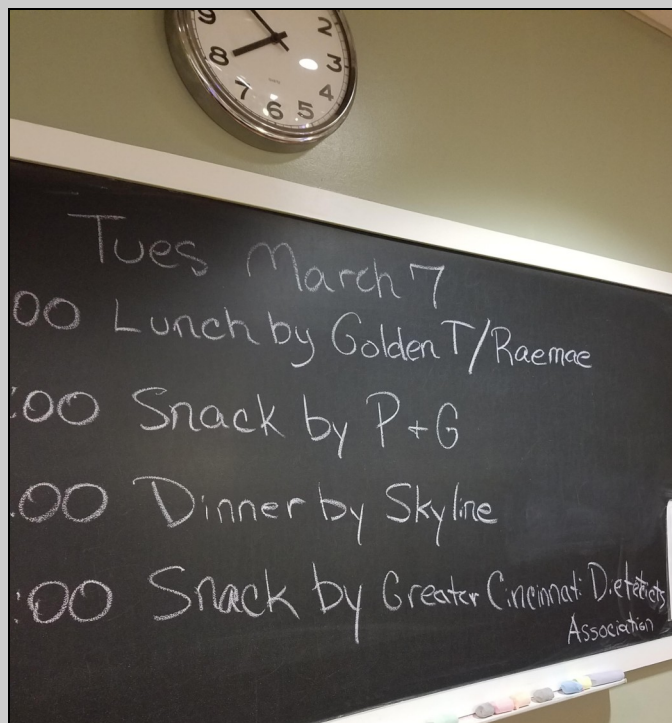 9 2
8 3
7 4
6 5
Tues March 7
00 Lunch by Golden T/Raemae
:00 Snack by P+G
:00 Dinner by Skyline
:00 Snack by Greater Cincinnati Dietetics
Association